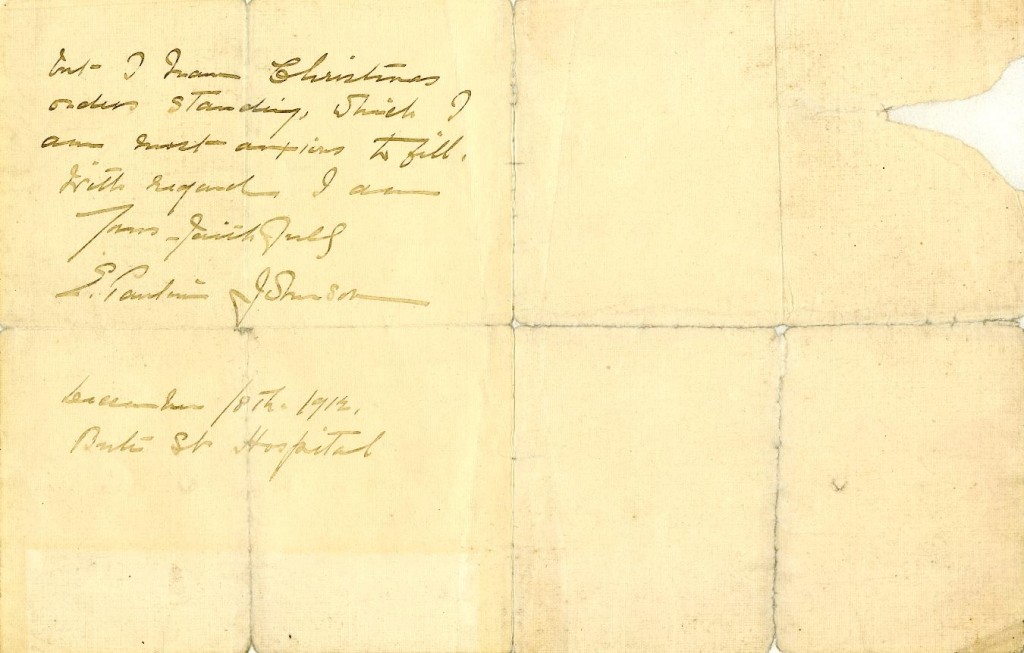 but I have Christmas
orders standing, which I
am most anxious to fill.
With regards, I am
Yours faithfully
E. Pauline Johnson
December 18th. 1912.
Bute St Hospital